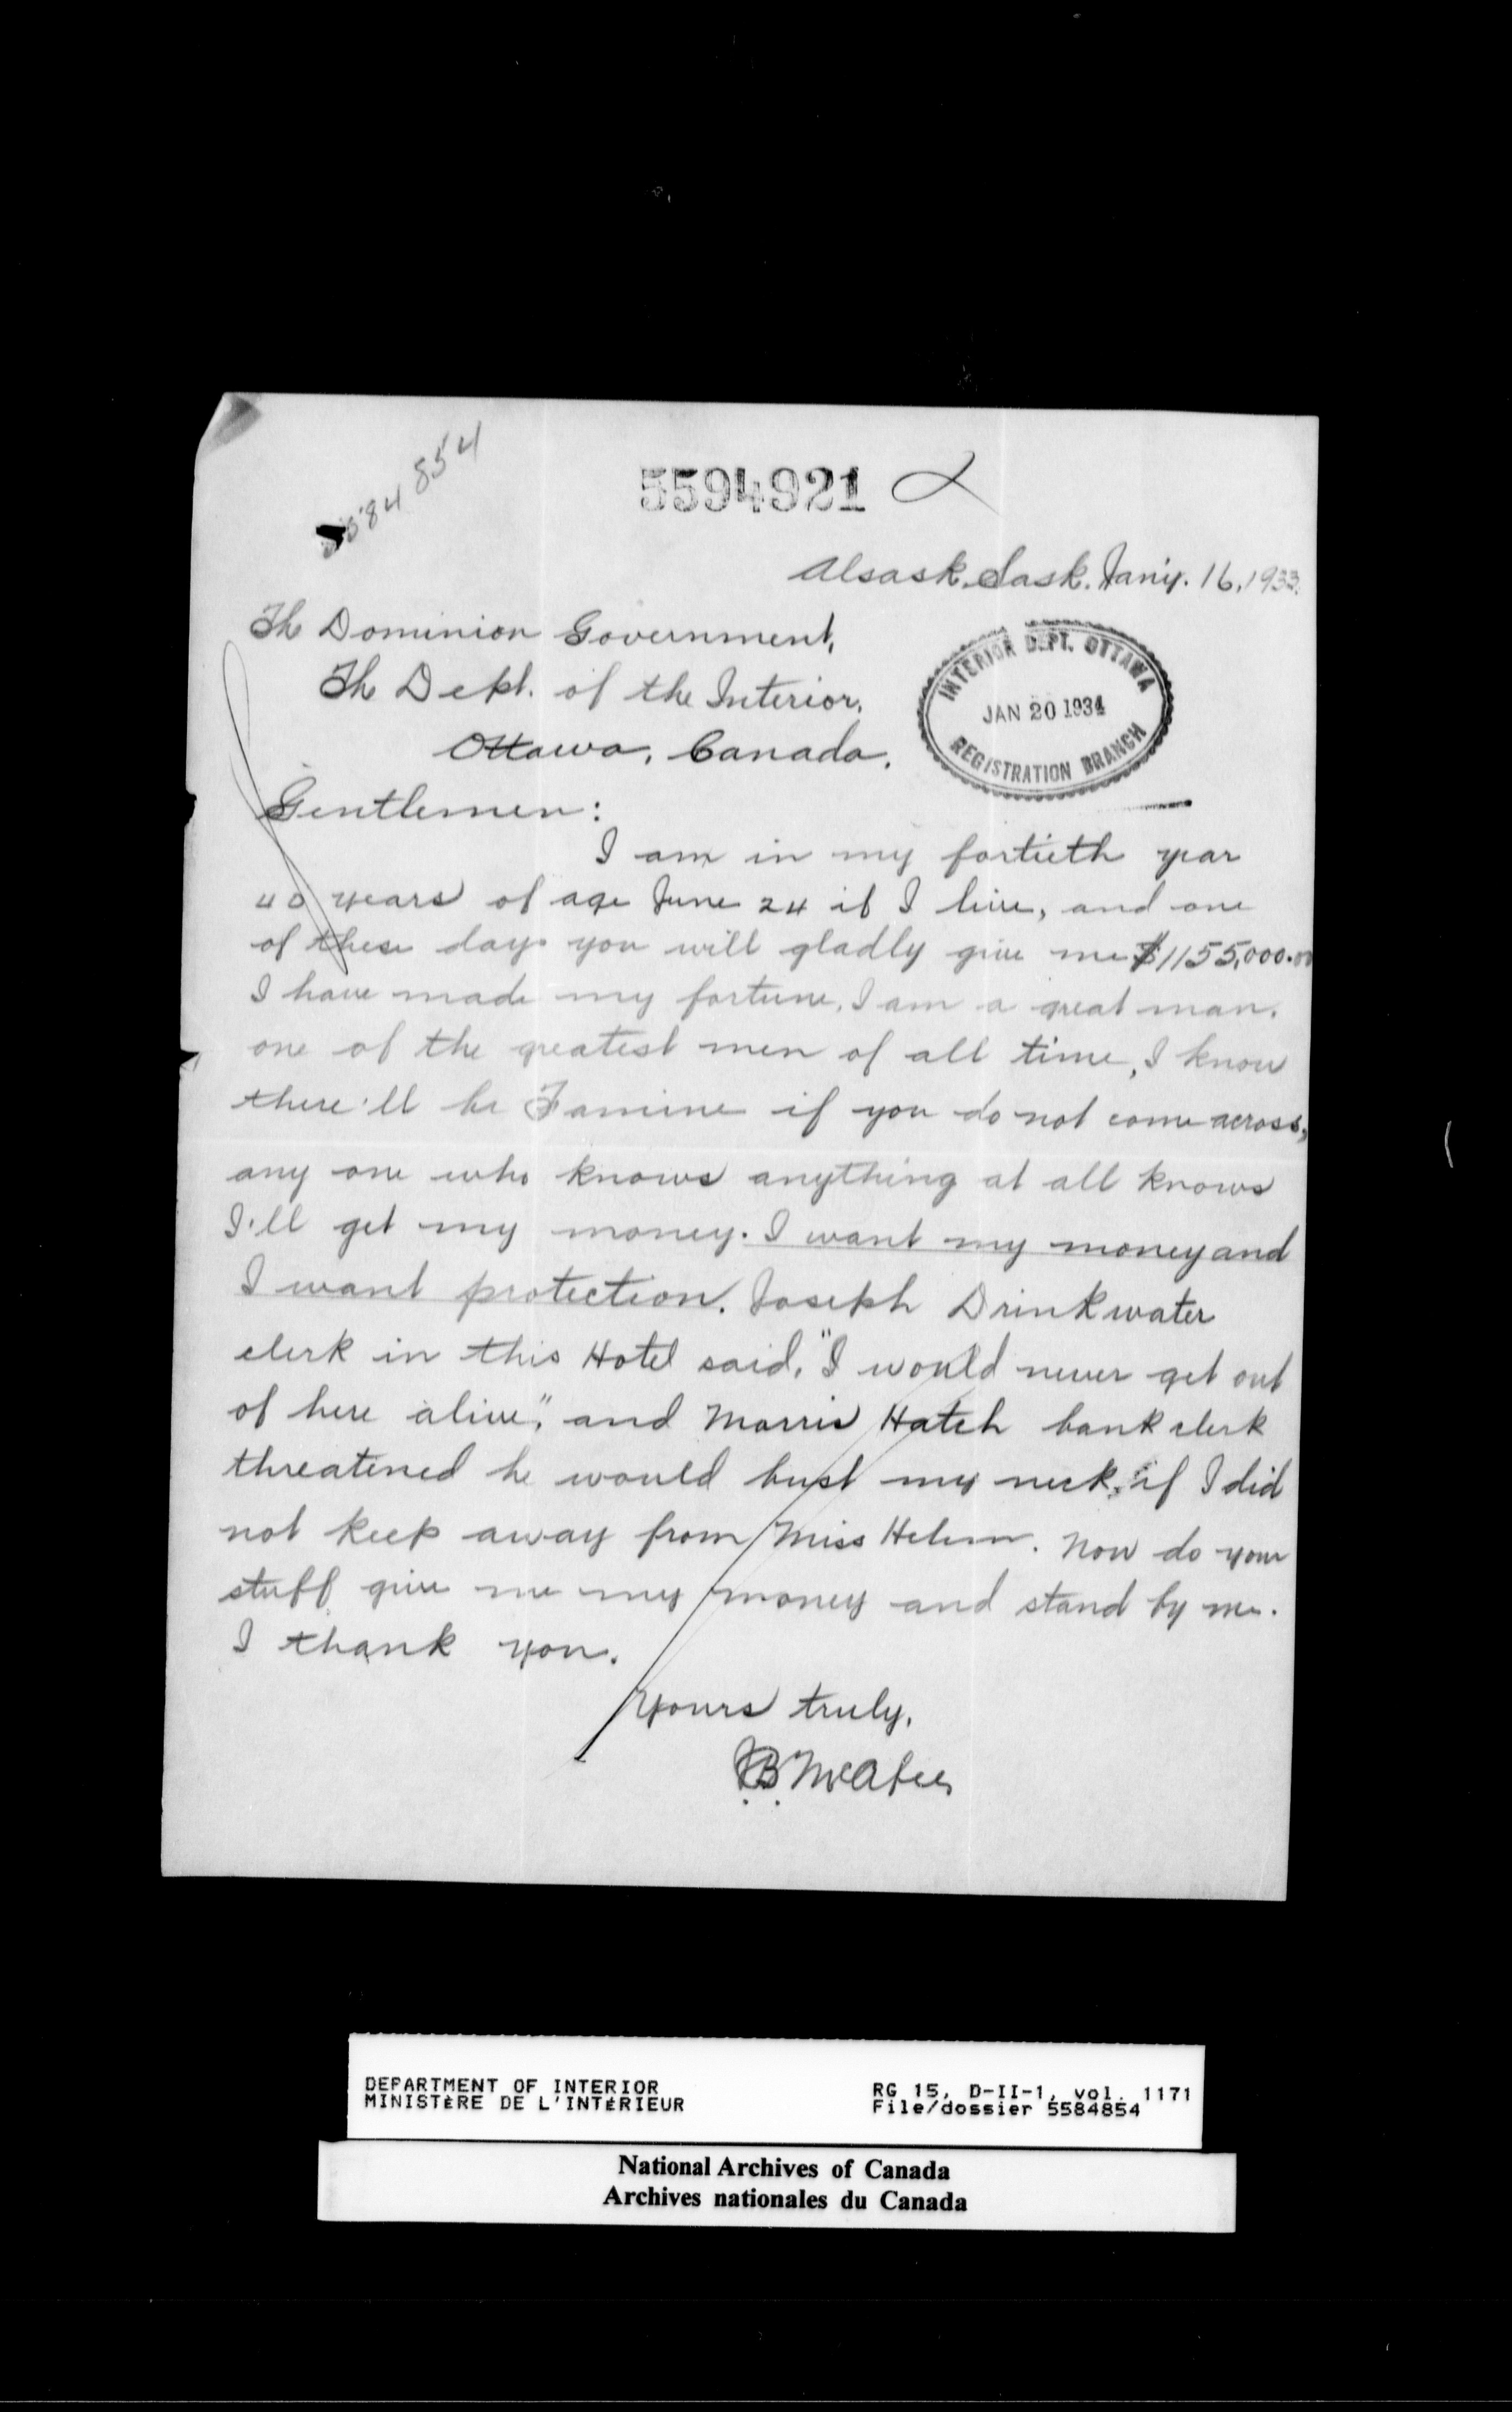 5584854
5594921
Alsask, Sask. Jan'y. 16, 1933.
Th Dominion Government,
Th Dept. of the Interior,
Ottawa, Canada.
INTERIOR DEPT. OTTAWA
JAN 20 1934
REGISTRATION BRANCH
Gentlemen:
I am in my fortieth year
40 years of age June 24 if I live, and one
of these days you will gladly give me $1155,000.00
I have made my fortune, I am a great man.
one of the greatest men of all time, I know
there'll be Famine if you do not come across,
any one who knows anything at all knows
I'll get my money. I want my money and
I want protection. Joseph Drinkwater
clerk in this Hotel said, "I would never get out
of here alive", and Morris Hatch bank clerk
threatened he would bust my neck, if I did
not keep away from Miss Helem. Now do your
stuff give me my money and stand by me.
I thank you.
Yours truly,
B McAfee
DEPARTMENT OF INTERIOR
MINISTÈRE DE L'INTÉRIEUR
RG 15, D-II-1, vol. 1171
File/dossier 5584854
National Archives of Canada
Archives nationales du Canada